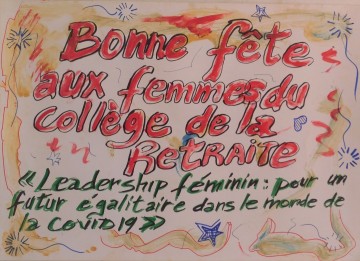 Bonne fête
aux femmes du
collège de la
Retraite
« Leadership féminin : pour un
futur égalitaire dans le monde de
la covid 19 »